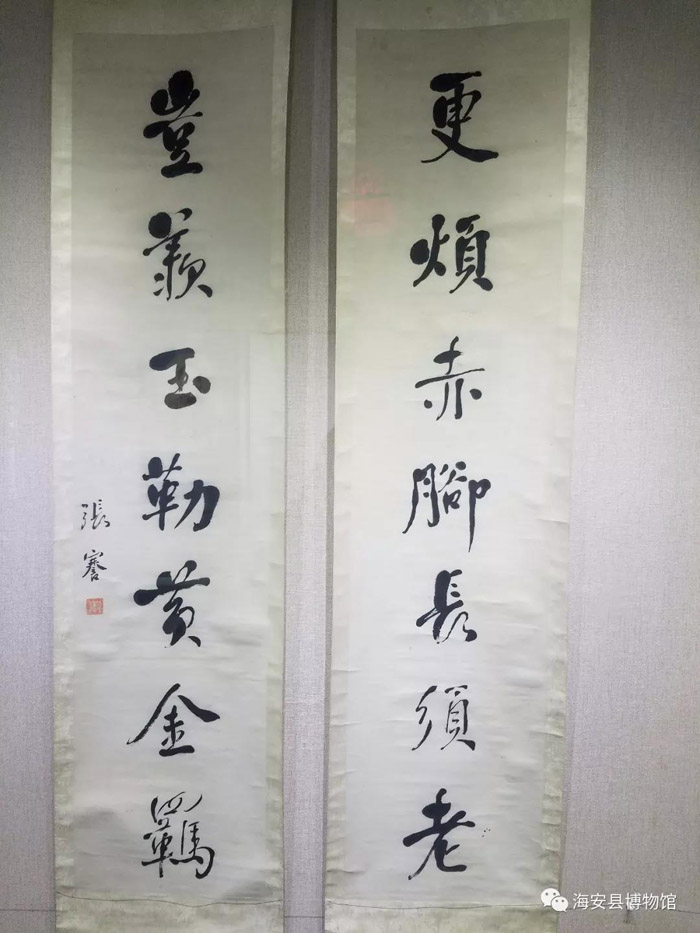 更煩赤腳長須老
豈羨玉勒黄金羈
張謇
海安县博物馆